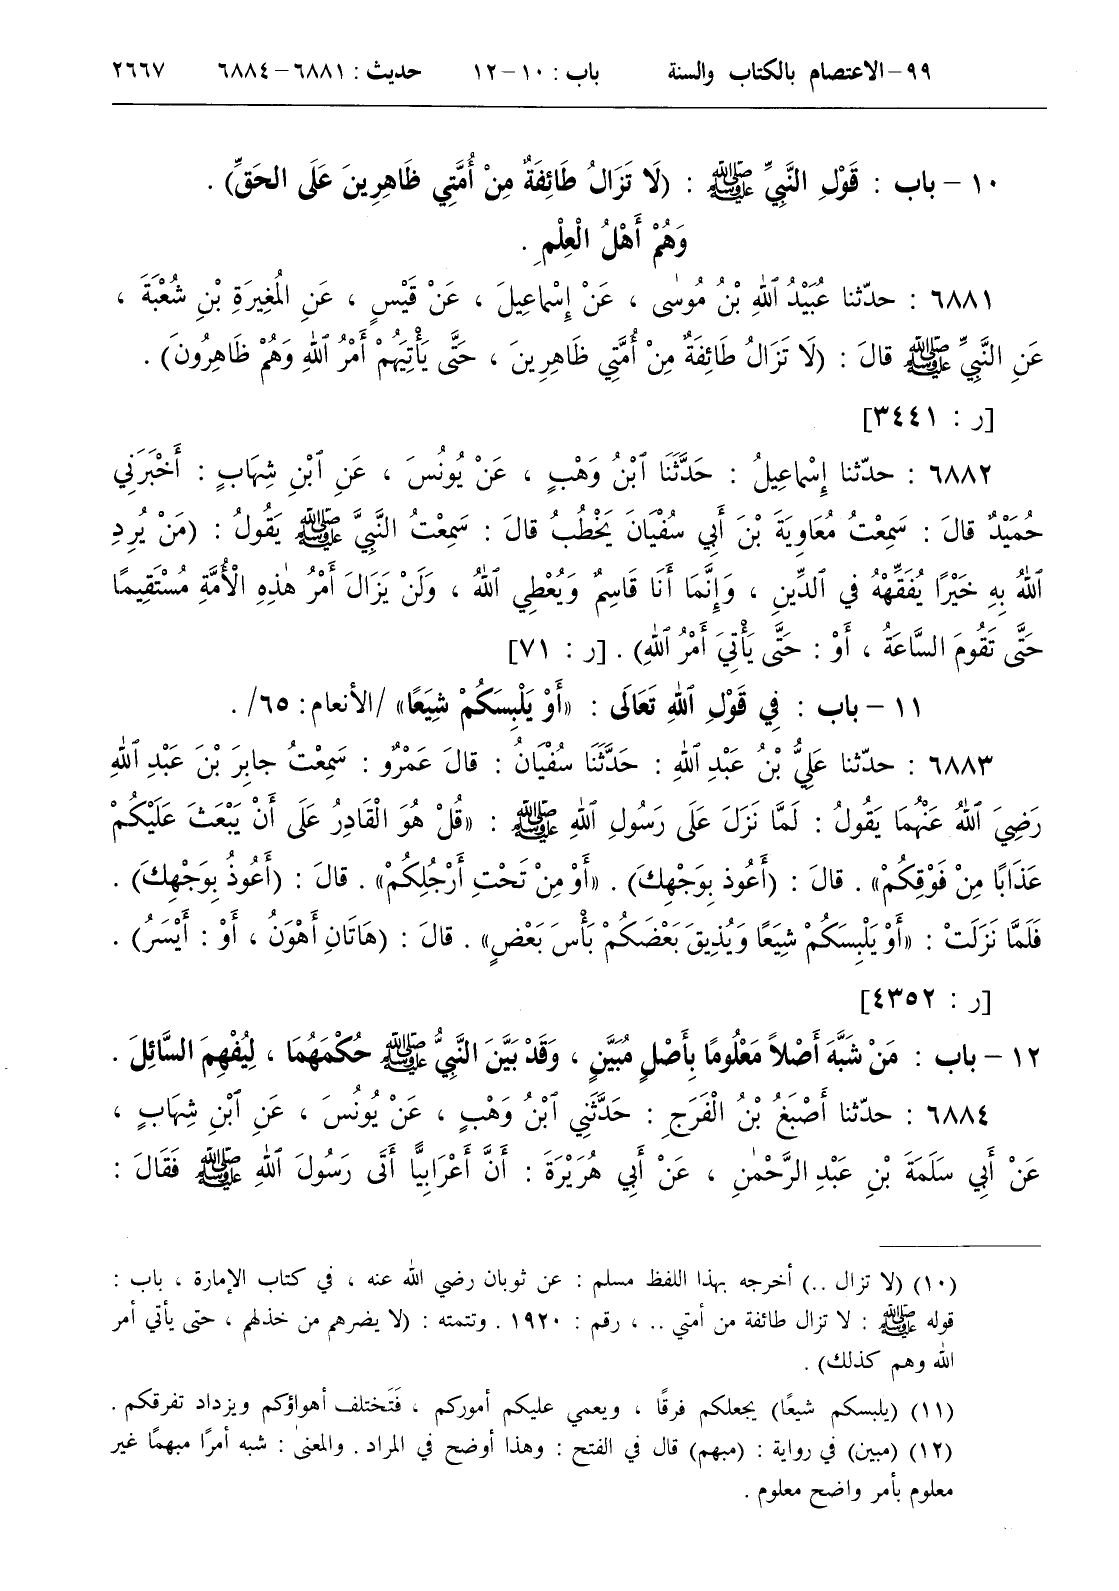 ٩٩-الاعتصام بالكتاب والسنة باب : ١٠-١٢ حديث : ٦٨٨١-٦٨٨٤ ٢٦٦٧
١٠ - باب : قَوْلِ النَّبِيِّ ﷺ : (لَا تَزَالُ طَائِفَةٌ مِنْ أُمَّتِي ظَاهِرِينَ عَلَى الحَقِّ) .
وَهُمْ أَهْلُ الْعِلْمِ .
٦٨٨١ : حدّثنا عُبَيْدُ ٱللهِ بْنُ مُوسٰى ، عَنْ إِسْماعِيلَ ، عَنْ قَيْسٍ ، عَنِ المُغِيرَةِ بْنِ شُعْبَةَ ،
عَنِ النَّبِيِّ ﷺ قالَ : (لَا تَزَالُ طَائِفَةٌ مِنْ أُمَّتِي ظَاهِرِينَ ، حَتَّى يَأْتِيَهُمْ أَمْرُ ٱللهِ وَهُمْ ظَاهِرُونَ) .
[ر : ٣٤٤١]
٦٨٨٢ : حدّثنا إِسْماعِيلُ : حَدَّثَنَا ٱبْنُ وَهْبٍ ، عَنْ يُونُسَ ، عَنِ ٱبْنِ شِهَابٍ : أَخْبَرَنِي
حُمَيْدٌ قالَ : سَمِعْتُ مُعَاوِيَةَ بْنَ أَبِي سُفْيَانَ يَخْطُبُ قالَ : سَمِعْتُ النَّبِيَّ ﷺ يَقُولُ : (مَنْ يُرِدِ
ٱللهُ بِهِ خَيْرًا يُفَقِّهْهُ في ٱلدِّينِ ، وَإِنَّمَا أَنَا قَاسِمٌ وَيُعْطِي ٱللهُ ، وَلَنْ يَزَالَ أَمْرُ هٰذِهِ الْأُمَّةِ مُسْتَقِيمًا
حَتَّى تَقُومَ السَّاعَةُ ، أَوْ : حَتَّى يَأْتِيَ أَمْرُ ٱللهِ) . [ر : ٧١]
١١ - باب : في قَوْلِ ٱللهِ تَعَالَى : «أَوْ يَلْبِسَكُمْ شِيَعًا» /الأنعام: ٦٥/ .
٦٨٨٣ : حدّثنا عَلِيُّ بْنُ عَبْدِ ٱللهِ : حَدَّثَنَا سُفْيَانُ : قالَ عَمْرٌو : سَمِعْتُ جابِرَ بْنَ عَبْدِ ٱللهِ
رَضِيَ ٱللهُ عَنْهُمَا يَقُولُ : لَمَّا نَزَلَ عَلَى رَسُولِ ٱللهِ ﷺ : «قُلْ هُوَ الْقَادِرُ عَلَى أَنْ يَبْعَثَ عَلَيْكُمْ
عَذَابًا مِنْ فَوْقِكُمْ» . قالَ : (أَعُوذ بِوَجْهِكَ) . «أَوْ مِنْ تَحْتِ أَرْجُلِكُمْ» . قالَ : (أَعُوذُ بِوَجْهِكَ) .
فَلَمَّا نَزَلَتْ : «أَوْ يَلْبِسَكُمْ شِيَعًا وَيُذِيقَ بَعْضَكُمْ بَأْسَ بَعْضٍ» . قالَ : (هَاتَانِ أَهْوَنُ ، أَوْ : أَيْسَرُ) .
[ر : ٤٣٥٢]
١٢ - باب : مَنْ شَبَّهَ أَصْلاً مَعْلُومًا بِأَصْلٍ مُبَيَّنٍ ، وَقَدْ بَيَّنَ النَّبِيُّ ﷺ حُكْمَهُمَا ، لِيُفْهِمَ السَّائِلَ .
٦٨٨٤ : حدّثنا أَصْبَغُ بْنُ الْفَرَجِ : حَدَّثَنِي ٱبْنُ وَهْبٍ ، عَنْ يُونُسَ ، عَنِ ٱبْنِ شِهَابٍ ،
عَنْ أَبِي سَلَمَةَ بْنِ عَبْدِ الرَّحْمٰنِ ، عَنْ أَبِي هُرَيْرَةَ : أَنَّ أَعْرَابِيًّا أَتَى رَسُولَ ٱللهِ ﷺ فَقَالَ :
(١٠) (لا تزال ..) أخرجه بهذا اللفظ مسلم : عن ثوبان رضي الله عنه ، في كتاب الإمارة ، باب :
قوله ﷺ : لا تزال طائفة من أمتي .. ، رقم : ١٩٢٠ . وتتمته : (لا يضرهم من خذلهم ، حتى يأتي أمر
الله وهم كذلك) .
(١١) (يلبسكم شيعًا) يجعلكم فرقًا ، ويعمي عليكم أموركم ، فَتَختلف أهواؤكم ويزداد تفرقكم .
(١٢) (مبين) في رواية : (مبهم) قال في الفتح : وهذا أوضح في المراد . والمعنىٰ : شبه أمرًا مبهمًا غير
معلوم بأمر واضح معلوم .